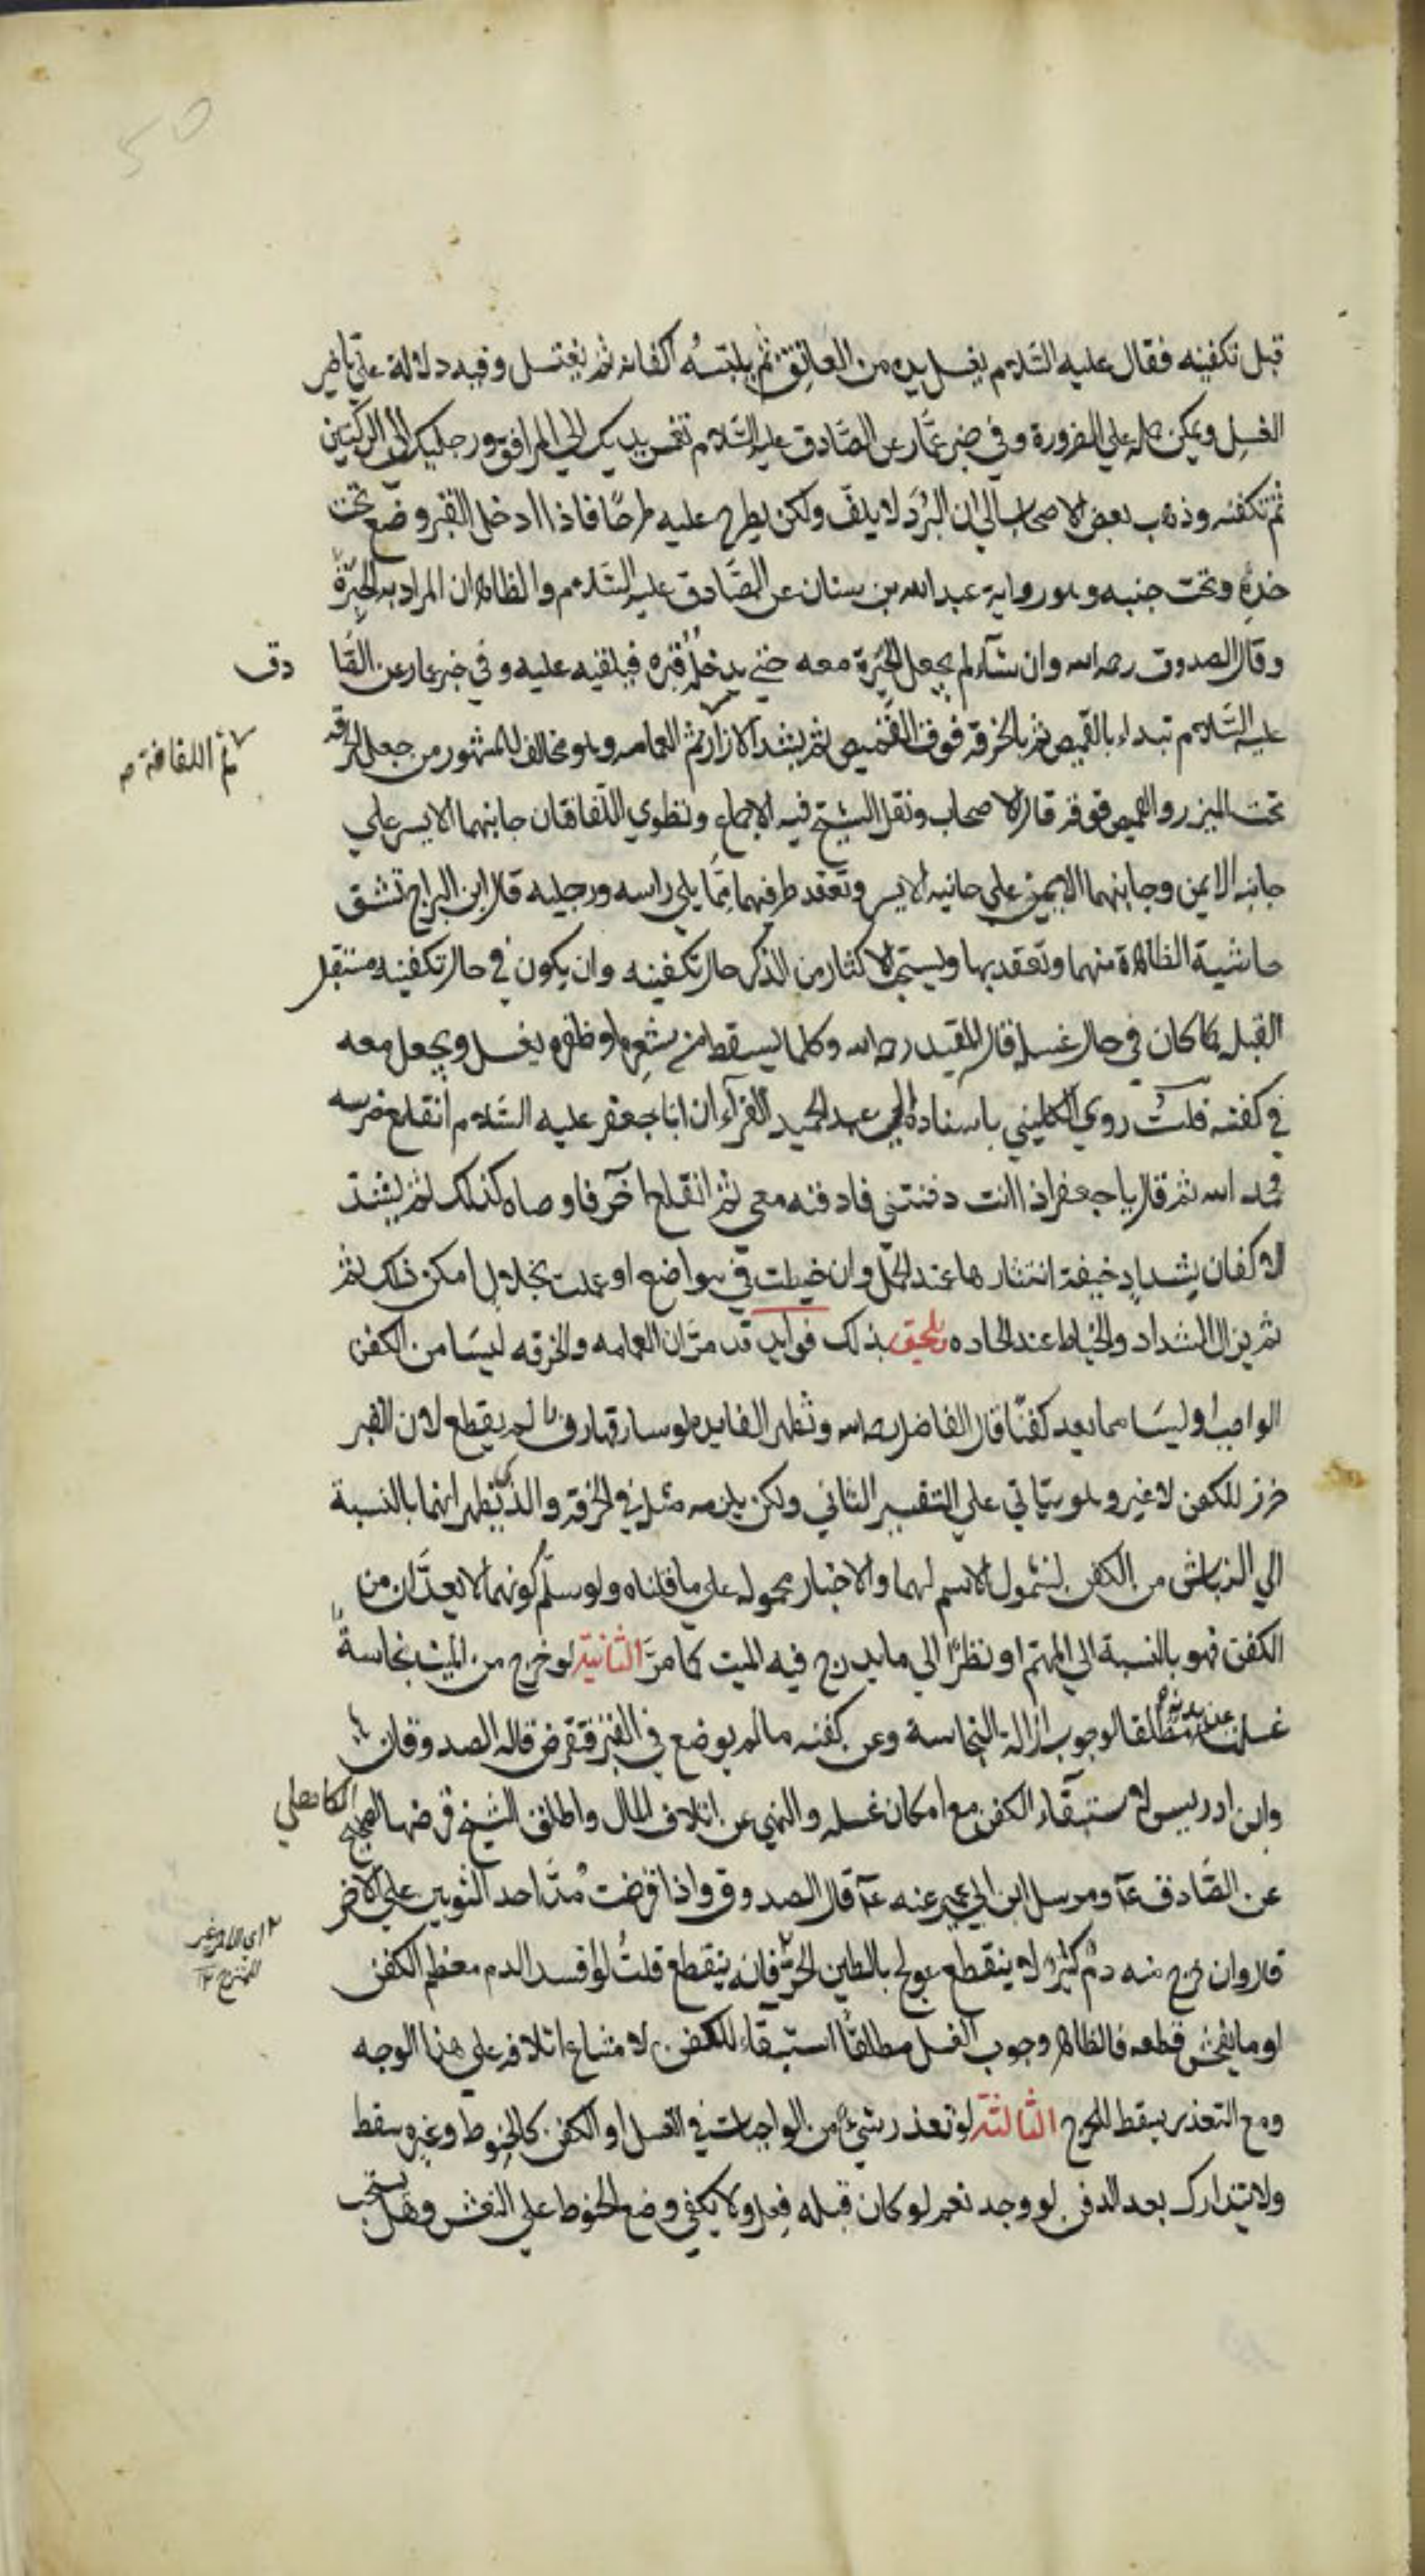 50
قبل تكفينه فقال عليه السّلام يغسل يده من العاتق ثم يلبسه اكفانه ثم يغتسل وفيه دلالة على تاخير
الغسل ويمكن حمله علي الضرورة وفي خبر عمّار عن الصّادق عليه السّلام تغسل يديك الي المرافق ورجليك الي الركبتين
ثم تكفنه وذهب بعض الاصحاب الي ان البُرَد لا يلفّ ولكن يطرح عليه طرحًا فاذا ادخل القبر وضع تحت
خدِهِ وتحت جنبه وهو رواية عبد الله بن سنان عن الصَّادق عليه السّلام والظاهر ان المراد به الحِبَرَةُ
وقال الصدوق رحمه الله وان شآء لم يجعل الحِبَرة معه حتي يدخله قبره فيلقيه عليه وفي خبر عمار عن الصَّا دق
عليه السَّلام تبداء بالقميص ثم بالخرقه فوق القميص ثم يشد الازار ثم العمامه وهو مخالف للمشهور من جعل الخرقه
ثم اللفافة صح
تحت الميزر والقميص فوقه قال الاصحاب ونقل الشيخ فيه الاجماع وتطوي اللّفافتان جانبهما الايسر علي
جانبه الايمن وجانبهما الايمن علي جانبه الايسر وتعقد طرفهما مِمَّا يلي راسه ورجليه قال ابن البراج تشق
حاشية الظاهرة منهما وتعقد بها ويستحب الاكثار من الذكر حال تكفينه وان يكون في حال تكفينه مستقبل
القبله كما كان في حال غسله قال المفيد رحمه الله وكلما يسقط من شعره او ظفره يغسل ويجعل معه
في كفنه قلتُ روي الكليني باسناده الي عبد الحميد الفرآء ان ابا جعفر عليه السَّلام انقلع ضرسه
فحمد الله ثم قال يا جعفر اذا انت دفنتني فادفنه معي ثم انقلع اخر فاوصاه كذلك ثم يشدّ
الاكفان بشدادٍ خيفة انتشارها عند الحمل وان خيطت في مواضع او عملت بخلال امكن ذلك ثم
ثم يزال الشداد والخياط عند الحاده يلحق بذلك فوايد قد مرّ ان العمامه والخرقه ليسَا من الكفن
الواجب او ليسَا مما يعد كفنًا قال الفاضل رحمه الله وتظهر الفايده لو سارقها رفـ لم يقطع لان القبر
حرز للكفن لا غير وهو يتاتي علي التفسير الثاني ولكن يلزمه مثله في الخرقه والذي يظهر انهما بالنسبة
الي النباش من الكفن لشمول الاسم لهما والاخبار محموله علي ما قلناه ولو سلّم كونهما لا يعدّان من
الكفن فهو بالنسبة الي المهتم او نظرًا الي ما يدرج فيه الميت كما مرّ الثانية لو خرج من الميت نجاسةٌ
غسلت عن بدنه مطلقا لوجوب ازالة النجاسة وعن كفنه ما لم يوضع في القبر فتقرض قاله الصدوقان
وابن ادريس لاستبقاء الكفن مع امكان غسله والنهي عن اتلاف المال واطلق الشيخ قرضها لصحيح الكاهلي
عن الصّادق ع ومرسل ابن ابي عمير عنه ع قال الصدوق واذا قرضت مُدّ احد الثوبين علي الاخر
قال وان خرج منه دمٌ كثير لا ينقطع عولج بالطين الحرّ فانه ينقطع قلتُ لو افسد الدم معظم الكفن
او ما يفحش قطعه فالظاهر وجوب الغسل مطلقًا استبقاء للكفن لامتناع اتلافه علي هذا الوجه
ومع التعذر يسقط للحرج الثالثة لو تعذر شيءٌ من الواجبات في الغسل او الكفن كالحنوط وغيره سقط
ولا يتدارك بعد الدفن لو وجد نعم لو كان قبله فعل ولا يكفي وضع الحنوط علي النعش وهل يستحب